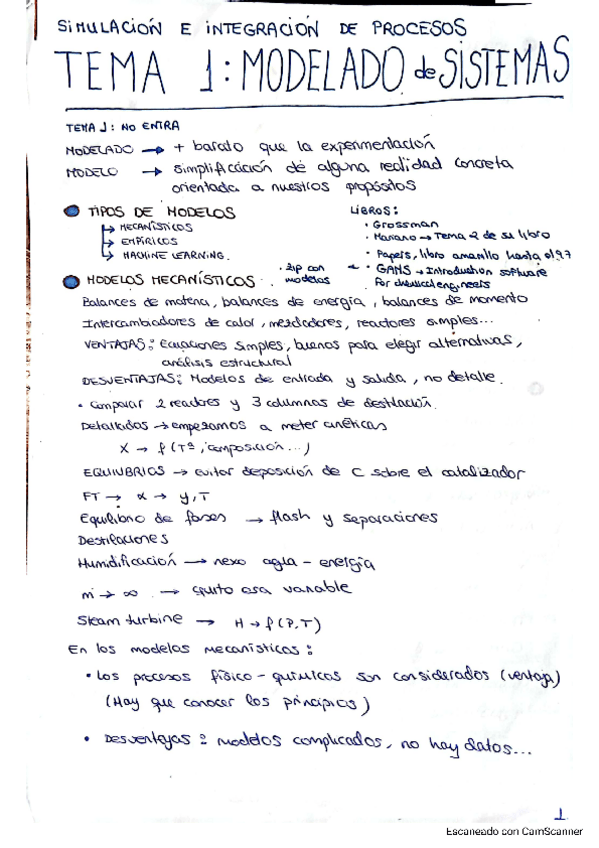 SIMULACIÓN E INTEGRACIÓN DE PROCESOS
TEMA 1: MODELADO de SISTEMAS
TEMA 1: NO ENTRA
MODELADO → + barato que la experimentación
MODELO → simplificación de alguna realidad concreta
orientada a nuestros propósitos
TIPOS DE MODELOS
MECANÍSTICOS
EMPÍRICOS
MACHINE LEARNING.
LIBROS:
· Grossman
· Mariano → Tema 2 de su libro
· Papers, libro amarillo hasta el 97
· GAMS → Introduction software
For chemical engineers
· zip con
modelos
MODELOS MECANÍSTICOS.
Balances de materia, balances de energía, balances de momento
Intercambiadores de calor, mezcladores, reactores simples...
VENTAJAS: Ecuaciones simples, buenos para elegir alternativas,
análisis estructural
DESVENTAJAS: Modelos de entrada y salida, no detalle.
· Comparar 2 reactores y 3 columnas de destilación.
Detallados → empezamos a meter cinéticas
X → f (Tª, composición...)
EQUILIBRIOS → evitar deposición de C sobre el catalizador
FT → α → y, T
Equilibrio de fases → flash y separaciones
Destilaciones
Humidificación → nexo agua - energía
m → ∞ → quito esa variable
Steam turbine → H → f (P, T)
En los modelos mecanísticos:
· Los procesos físico - químicos son considerados (ventaja)
(Hay que conocer los principios)
· Desventajas: modelos complicados, no hay datos...
1
Escaneado con CamScanner